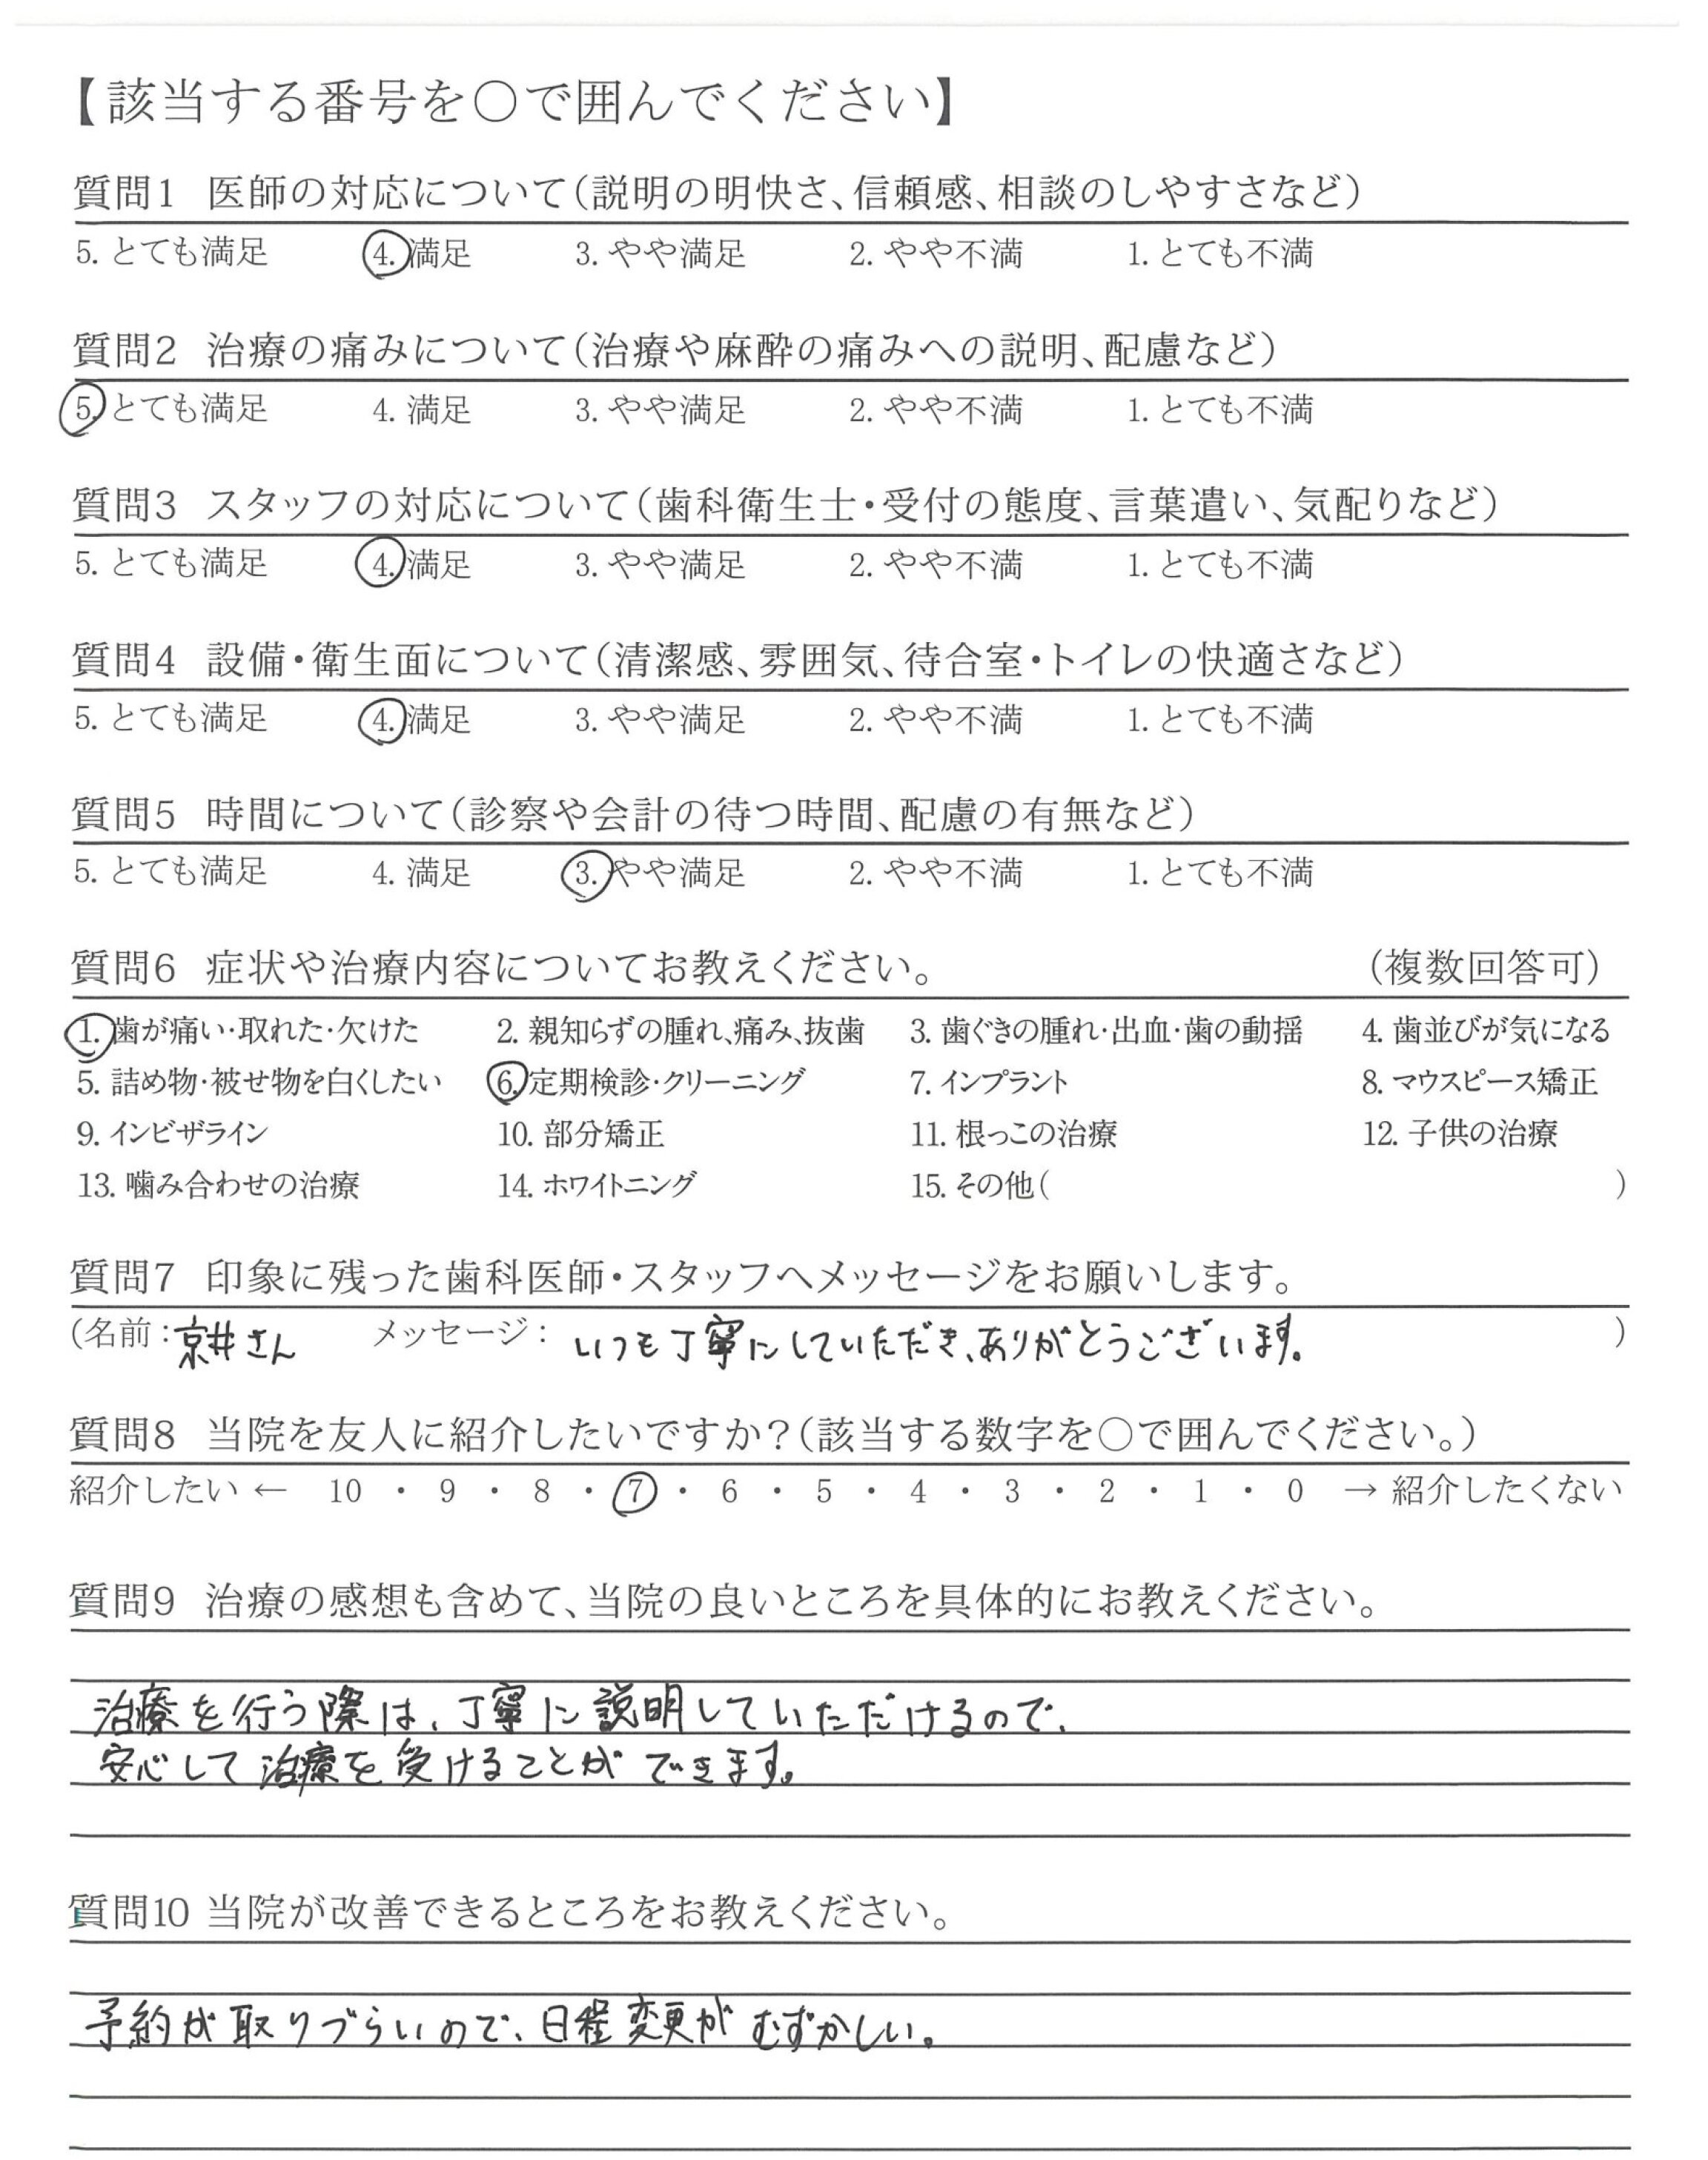 【該当する番号を○で囲んでください】
質問1 医師の対応について(説明の明快さ、信頼感、相談のしやすさなど)
5. とても満足 4. 満足 3. やや満足 2. やや不満 1. とても不満
質問2 治療の痛みについて(治療や麻酔の痛みへの説明、配慮など)
5. とても満足 4. 満足 3. やや満足 2. やや不満 1. とても不満
質問3 スタッフの対応について(歯科衛生士・受付の態度、言葉遣い、気配りなど)
5. とても満足 4. 満足 3. やや満足 2. やや不満 1. とても不満
質問4 設備・衛生面について(清潔感、雰囲気、待合室・トイレの快適さなど)
5. とても満足 4. 満足 3. やや満足 2. やや不満 1. とても不満
質問5 時間について(診察や会計の待つ時間、配慮の有無など)
5. とても満足 4. 満足 3. やや満足 2. やや不満 1. とても不満
質問6 症状や治療内容についてお教えください。 (複数回答可)
1. 歯が痛い・取れた・欠けた 2. 親知らずの腫れ、痛み、抜歯 3. 歯ぐきの腫れ・出血・歯の動揺 4. 歯並びが気になる
5. 詰め物・被せ物を白くしたい 6. 定期検診・クリーニング 7. インプラント 8. マウスピース矯正
9. インビザライン 10. 部分矯正 11. 根っこの治療 12. 子供の治療
13. 噛み合わせの治療 14. ホワイトニング 15. その他( )
質問7 印象に残った歯科医師・スタッフへメッセージをお願いします。
(名前:京井さん メッセージ: いつも丁寧にしていただき、ありがとうございます。 )
質問8 当院を友人に紹介したいですか?(該当する数字を○で囲んでください。)
紹介したい ← 10 ・ 9 ・ 8 ・ 7 ・ 6 ・ 5 ・ 4 ・ 3 ・ 2 ・ 1 ・ 0 → 紹介したくない
質問9 治療の感想も含めて、当院の良いところを具体的にお教えください。
治療を行う際は、丁寧に説明していただけるので、
安心して治療を受けることができます。
質問10 当院が改善できるところをお教えください。
予約が取りづらいので、日程変更がむずかしい。